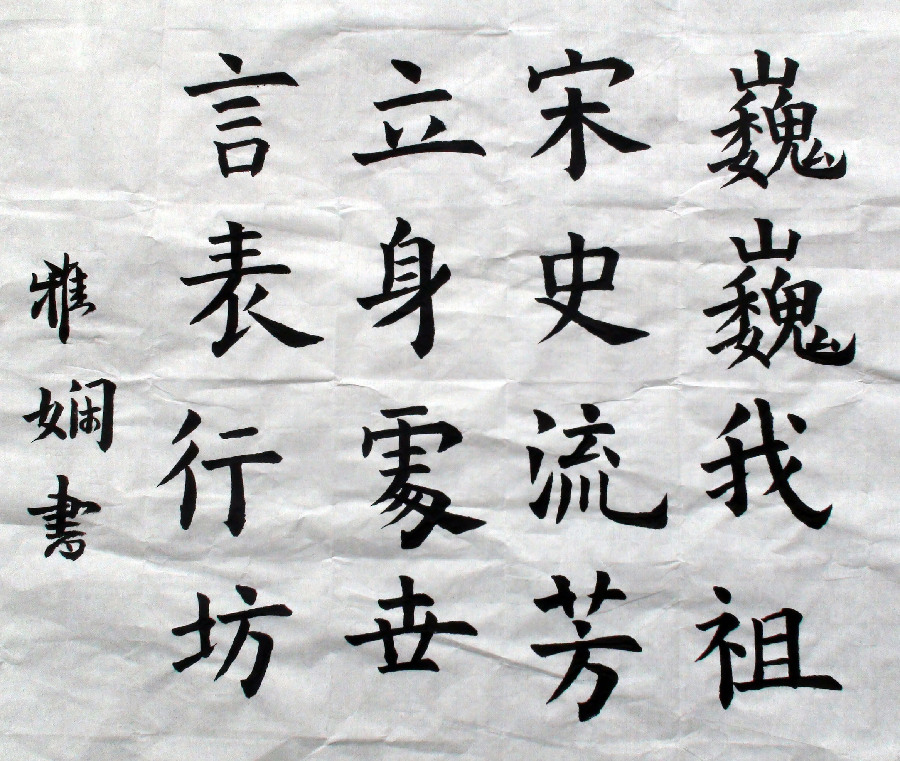 巍巍我祖
宋史流芳
立身處世
言表行坊
雅娴書